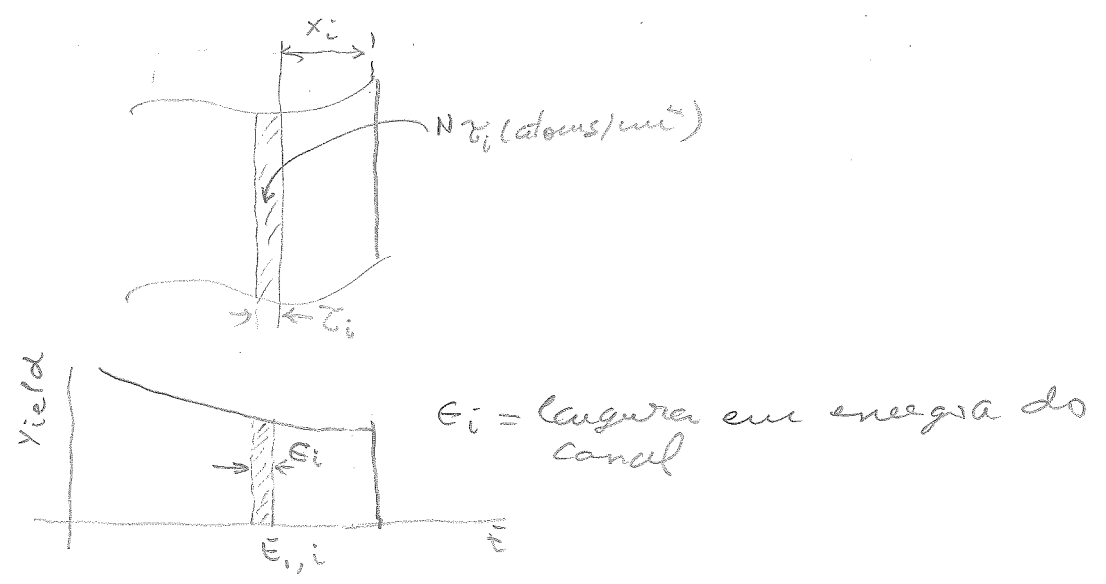 xᵢ
Nτᵢ (atoms/cm²)
τᵢ
Yield
ϵᵢ
ϵᵢ = largura em energia do
canal
E₁,ᵢ
E